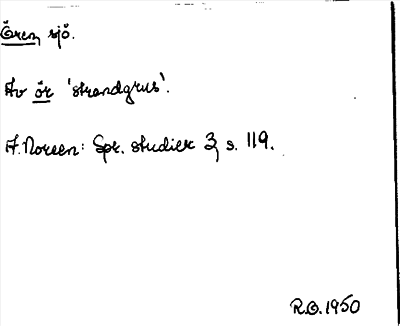 Ören, sjö.
Av ör 'strandgrus'.
A. Noreen: Spr. studier 3, s. 119.
R.O. 1950